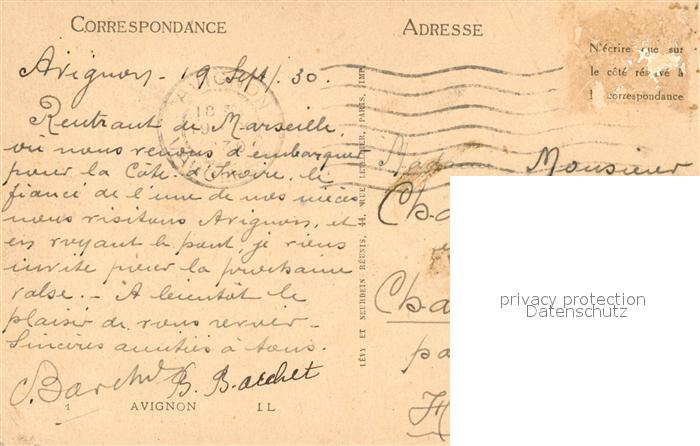 CORRESPONDANCE
ADRESSE
N'écrire que sur
le côté réservé à
la correspondance
Avignon - 19 Sept/30.
AVIGNON
Rentrant de Marseille,
où nous venons d'embarquer
pour la Côte d'Ivoire, le
fiancé de l'une de nos nièces
nous visitons Avignon, et
en voyant le pont, je viens
invite pour la prochaine
valse. - A bientôt le
plaisir de vous revoir -
Sincères amitiés à tous.
B. Barchet
Madame Monsieur
LÉVY ET NEURDEIN RÉUNIS, 44, RUE LETELLIER, PARIS, IMP.
1 AVIGNON LL
privacy protection
Datenschutz